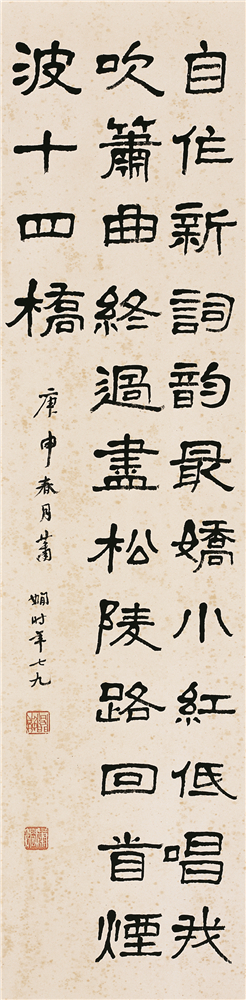 自作新詞韵最嬌小紅低唱我
吹簫曲終過盡松陵路回首煙
波十四橋
庚申春月蕭嫺時年七九